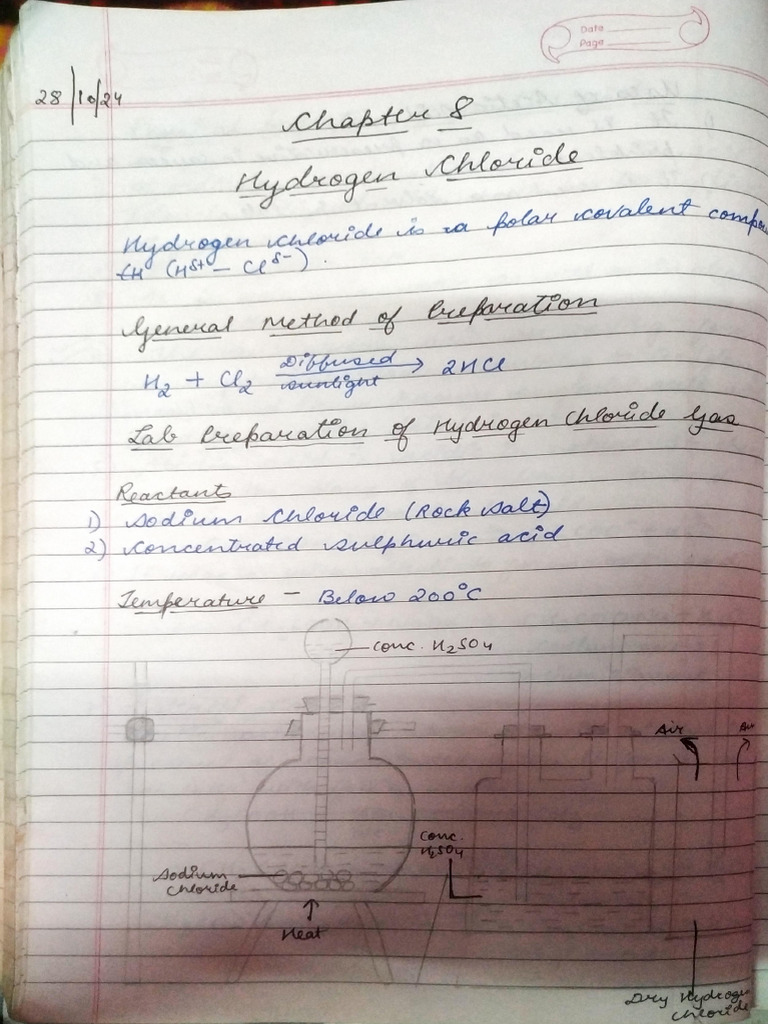 Date
Page
28/10/24
Chapter 8
Hydrogen Chloride
Hydrogen chloride is a polar covalent compou
(Hδ+ – Clδ-).
General Method of Preparation
H2 + Cl2 Diffused sunlight → 2HCl
Lab Preparation of Hydrogen Chloride Gas
Reactants
1) Sodium Chloride (Rock salt)
2) Concentrated sulphuric acid
Temperature – Below 200°C
conc. H2SO4
Air
Air
conc.
H2SO4
Sodium
chloride
Heat
Dry Hydrogen
chloride